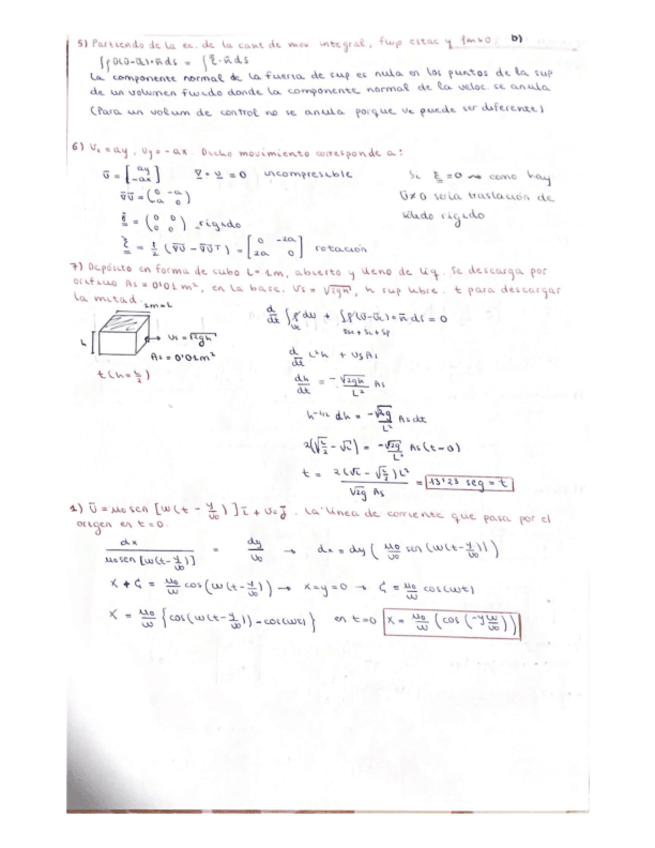 5) Partiendo de la ec. de la cant de mov integral, flujo estac y fm=0. b)
∫ρῡ(ῡ-ῡc)·n̄ds = ∫τ̿·n̄ds
La componente normal de la fuerza de sup es nula en los puntos de la sup
de un volumen fluido donde la componente normal de la veloc. se anula
(Para un volum de control no se anula porque vc puede ser diferente)
6) Vx = ay, Vy = -ax. Dicho movimiento corresponde a:
ῡ = [ay -ax] ∇·v = 0 incompresible
∇ῡ = (0 -a a 0)
= (0 0 0 0) rígido
= 1/2 (∇ῡ - ∇ῡᵀ) = [0 -2a 2a 0] rotación
Si =0 → como hay
ῡ≠0 sería traslación de
sólido rígido
7) Depósito en forma de cubo L=1m, abierto y lleno de liq. Se descarga por
orificio As = 0'01 m², en la base. Vs = √2gh, h sup libre. t para descargar
la mitad.
1m=L
h
Vs = √2gh
As = 0'01m²
t(h = L/2)
d/dt ∫ρdv + ∫ρ(ῡ-ῡc)·n̄ ds = 0
Vc
d/dt L²h + VsAs
dh/dt = -√2gh/L² As
h^-1/2 dh = -√2g/L² As dt
2(√L/2 - √L) = -√2g/L² As(t-0)
t = 2(√L - √L/2)L² / √2g As = 13'23 seg = t
1) ῡ = μ₀sen[w(t - y/v₀)]ī + v₀j̄. La línea de corriente que pasa por el
origen en t=0.
dx / μ₀sen[w(t-y/v₀)] = dy/v₀ → dx = dy(μ₀/v₀ sen(w(t-y/v₀)))
x + C = μ₀/w cos(w(t-y/v₀)) → x=y=0 → C = μ₀/w cos(wt)
x = μ₀/w {cos(w(t-y/v₀)) - cos(wt)} en t=0 x = μ₀/w (cos(-yw/v₀))